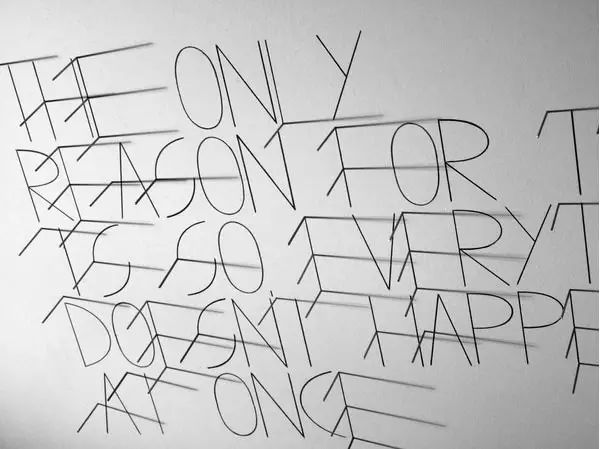 THE ONLY
REASON FOR T
IS SO EVERYT
DOESN'T HAPPE
AT ONCE